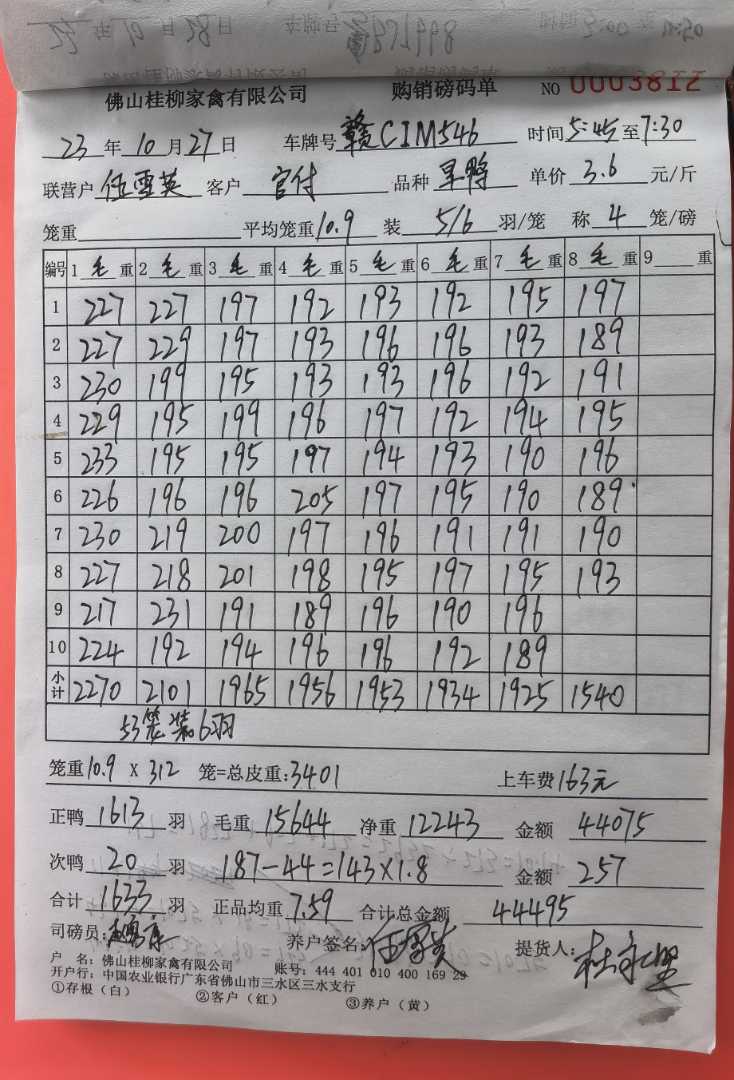 佛山桂柳家禽有限公司 购销磅码单 NO 0003812
23年10月27日 车牌号 赣CIM546 时间5:45至7:30
联营户 伍雪英 客户 官付 品种 旱鸭 单价 3.6 元/斤
笼重 平均笼重10.9 装 5/6 羽/笼 称 4 笼/磅
编号 1 毛 重 2 毛 重 3 毛 重 4 毛 重 5 毛 重 6 毛 重 7 毛 重 8 毛 重 9 重
1 227 227 197 192 193 192 195 197
2 227 229 197 193 196 196 193 189
3 230 199 195 193 193 196 192 191
4 229 195 199 196 197 192 194 195
5 233 195 195 197 194 193 190 196
6 226 196 196 205 197 195 190 189
7 230 219 200 197 196 191 191 190
8 227 218 201 198 195 197 195 193
9 217 231 191 189 196 190 196
10 224 192 194 196 196 192 189
小计 2270 2101 1965 1956 1953 1934 1925 1540
53笼装6羽
笼重10.9 X 312 笼=总皮重:3401 上车费163元
正鸭 1613 羽 毛重 15644 净重 12243 金额 44075
次鸭 20 羽 187-44=143×1.8 金额 257
合计 1633 羽 正品均重 7.59 合计总金额 44495
司磅员: 养户签名: 伍雪英 提货人:
户 名:佛山桂柳家禽有限公司 账号:444 401 010 400 169 29
开户行:中国农业银行广东省佛山市三水区三水支行
①存根(白) ②客户(红) ③养户(黄)